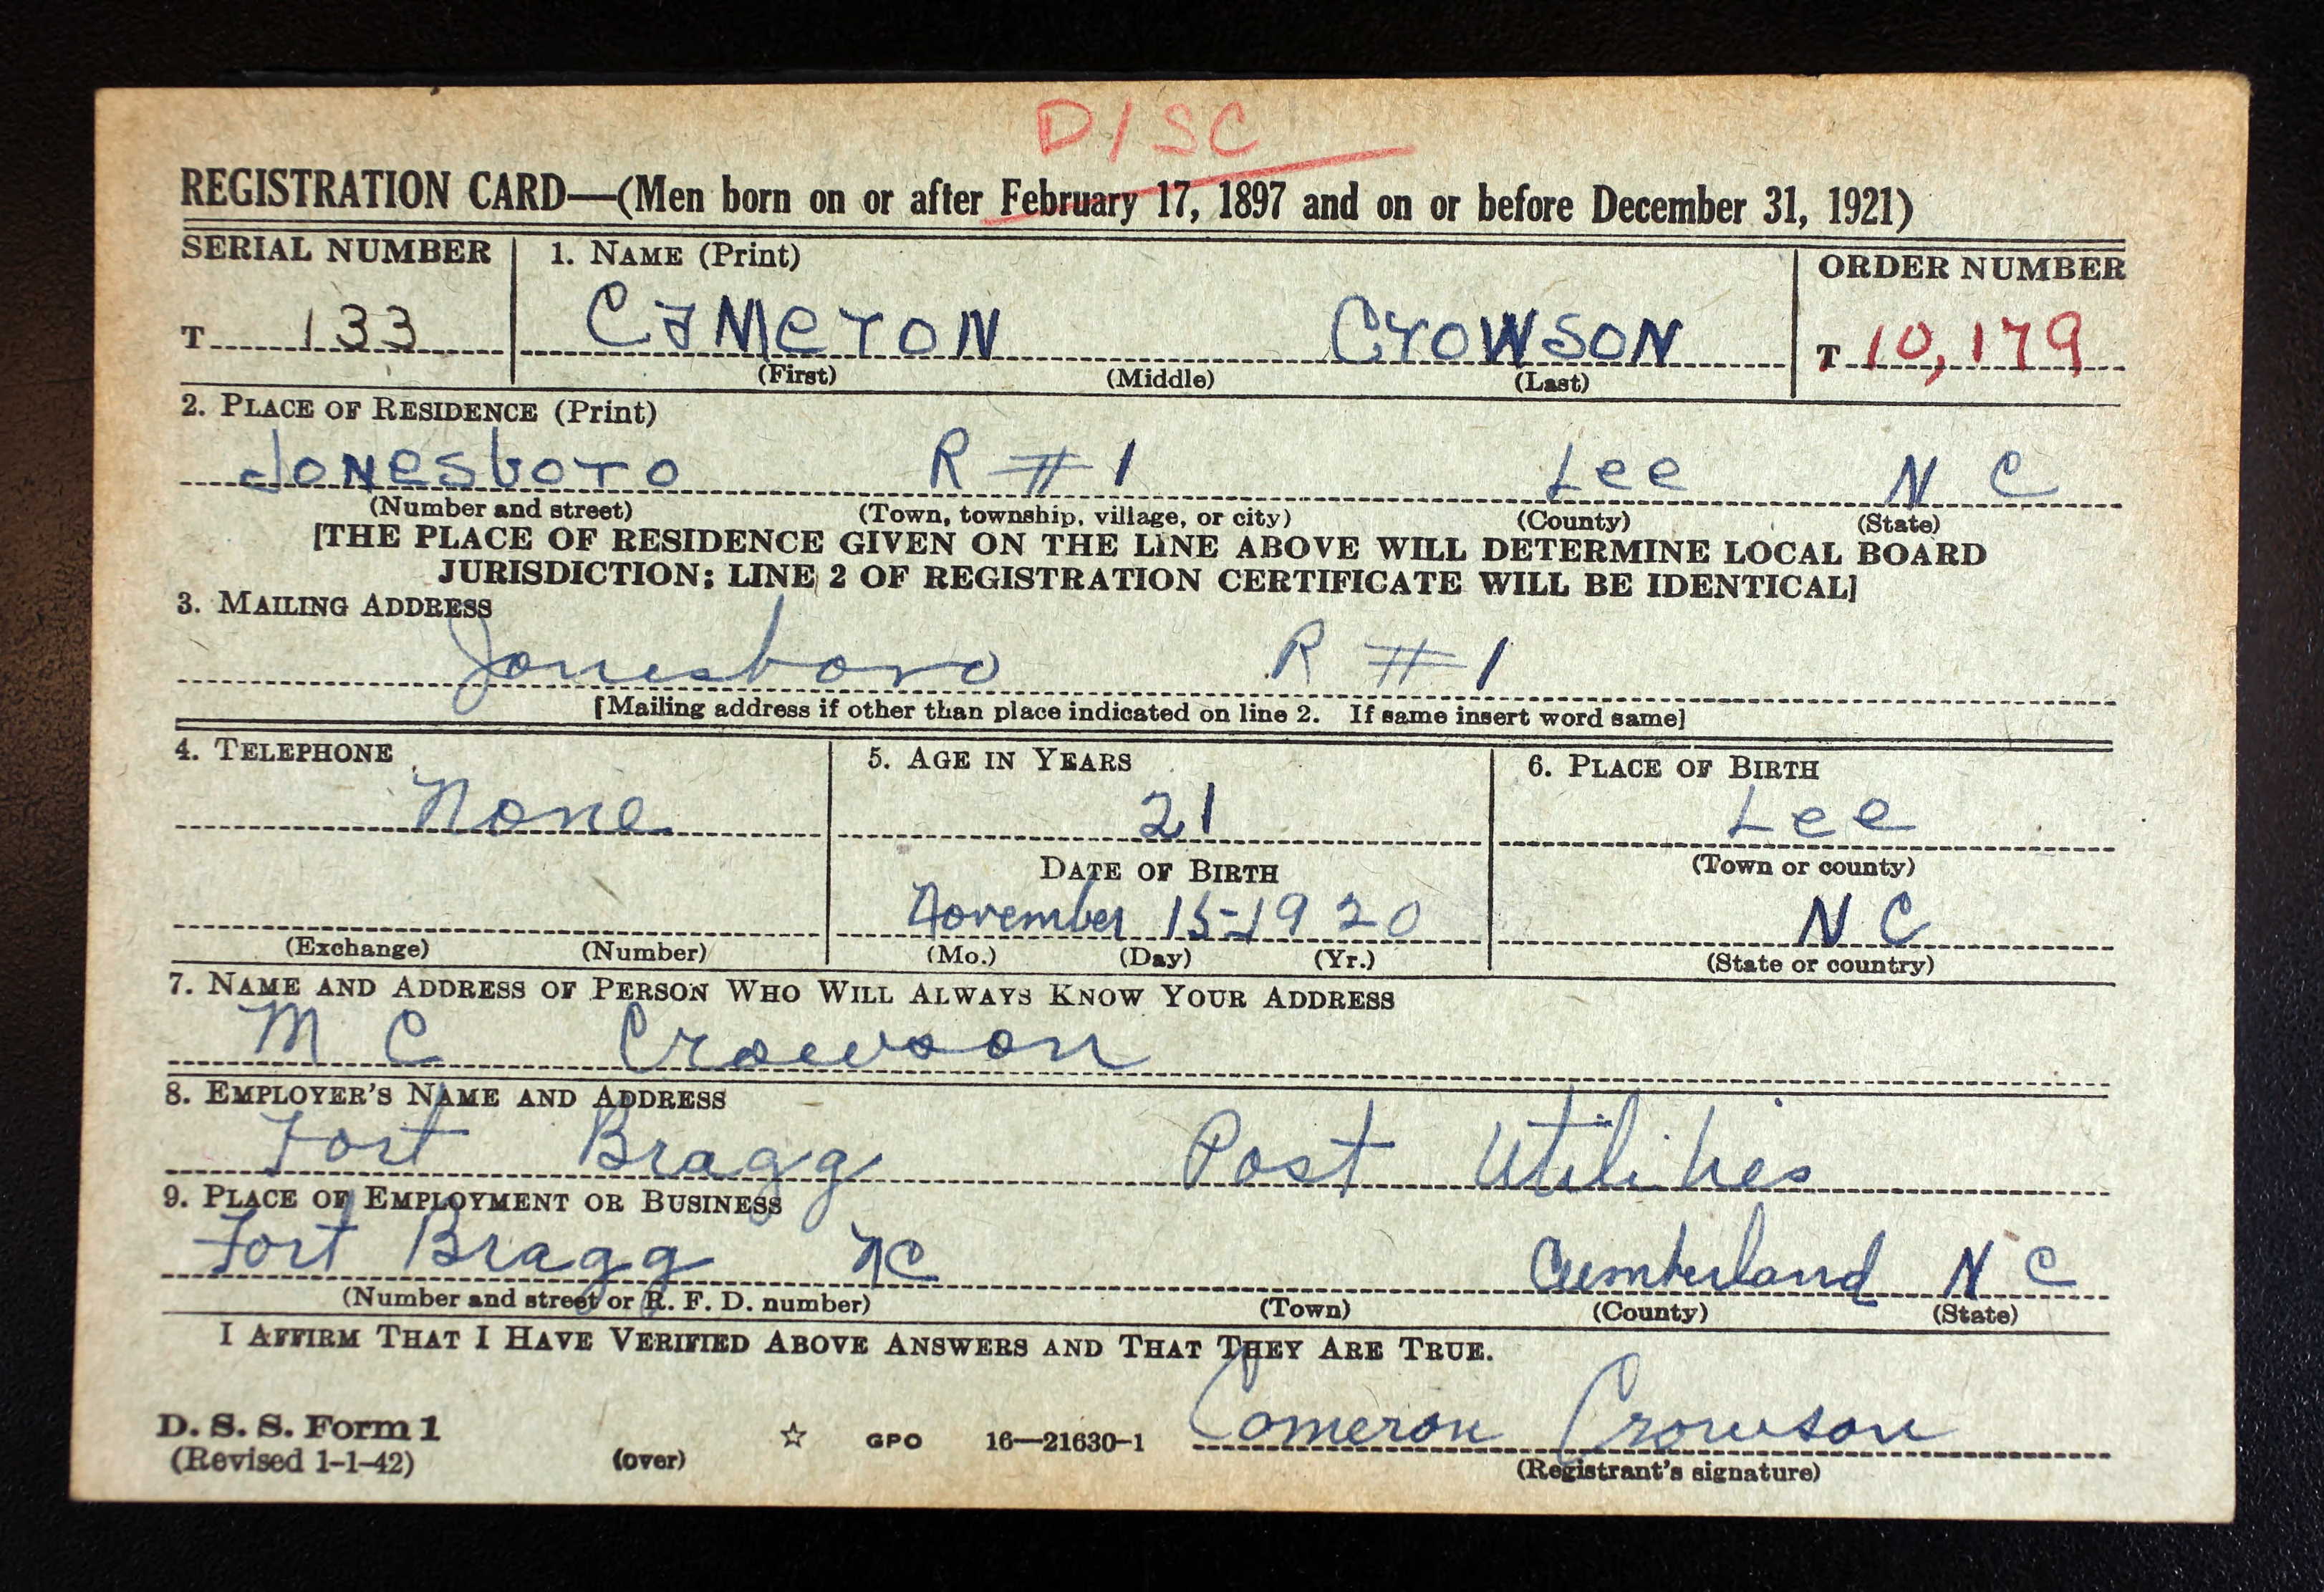 DISC
REGISTRATION CARD—(Men born on or after February 17, 1897 and on or before December 31, 1921)
SERIAL NUMBER 1. NAME (Print) ORDER NUMBER
T 133 Cameron Crowson T 10,179
(First) (Middle) (Last)
2. PLACE OF RESIDENCE (Print)
Jonesboro R #1 Lee N C
(Number and street) (Town, township, village, or city) (County) (State)
[THE PLACE OF RESIDENCE GIVEN ON THE LINE ABOVE WILL DETERMINE LOCAL BOARD
JURISDICTION; LINE 2 OF REGISTRATION CERTIFICATE WILL BE IDENTICAL]
3. MAILING ADDRESS
Jonesboro R #1
[Mailing address if other than place indicated on line 2. If same insert word same]
4. TELEPHONE 5. AGE IN YEARS 6. PLACE OF BIRTH
None 21 Lee
DATE OF BIRTH (Town or county)
November 15-1920 N C
(Exchange) (Number) (Mo.) (Day) (Yr.) (State or country)
7. NAME AND ADDRESS OF PERSON WHO WILL ALWAYS KNOW YOUR ADDRESS
M C Crowson
8. EMPLOYER'S NAME AND ADDRESS
Fort Bragg Post Utilities
9. PLACE OF EMPLOYMENT OR BUSINESS
Fort Bragg NC Cumberland N C
(Number and street or R. F. D. number) (Town) (County) (State)
I AFFIRM THAT I HAVE VERIFIED ABOVE ANSWERS AND THAT THEY ARE TRUE.
D. S. S. Form 1
(Revised 1-1-42) (over) ☆ GPO 16—21630-1 Cameron Crowson
(Registrant's signature)